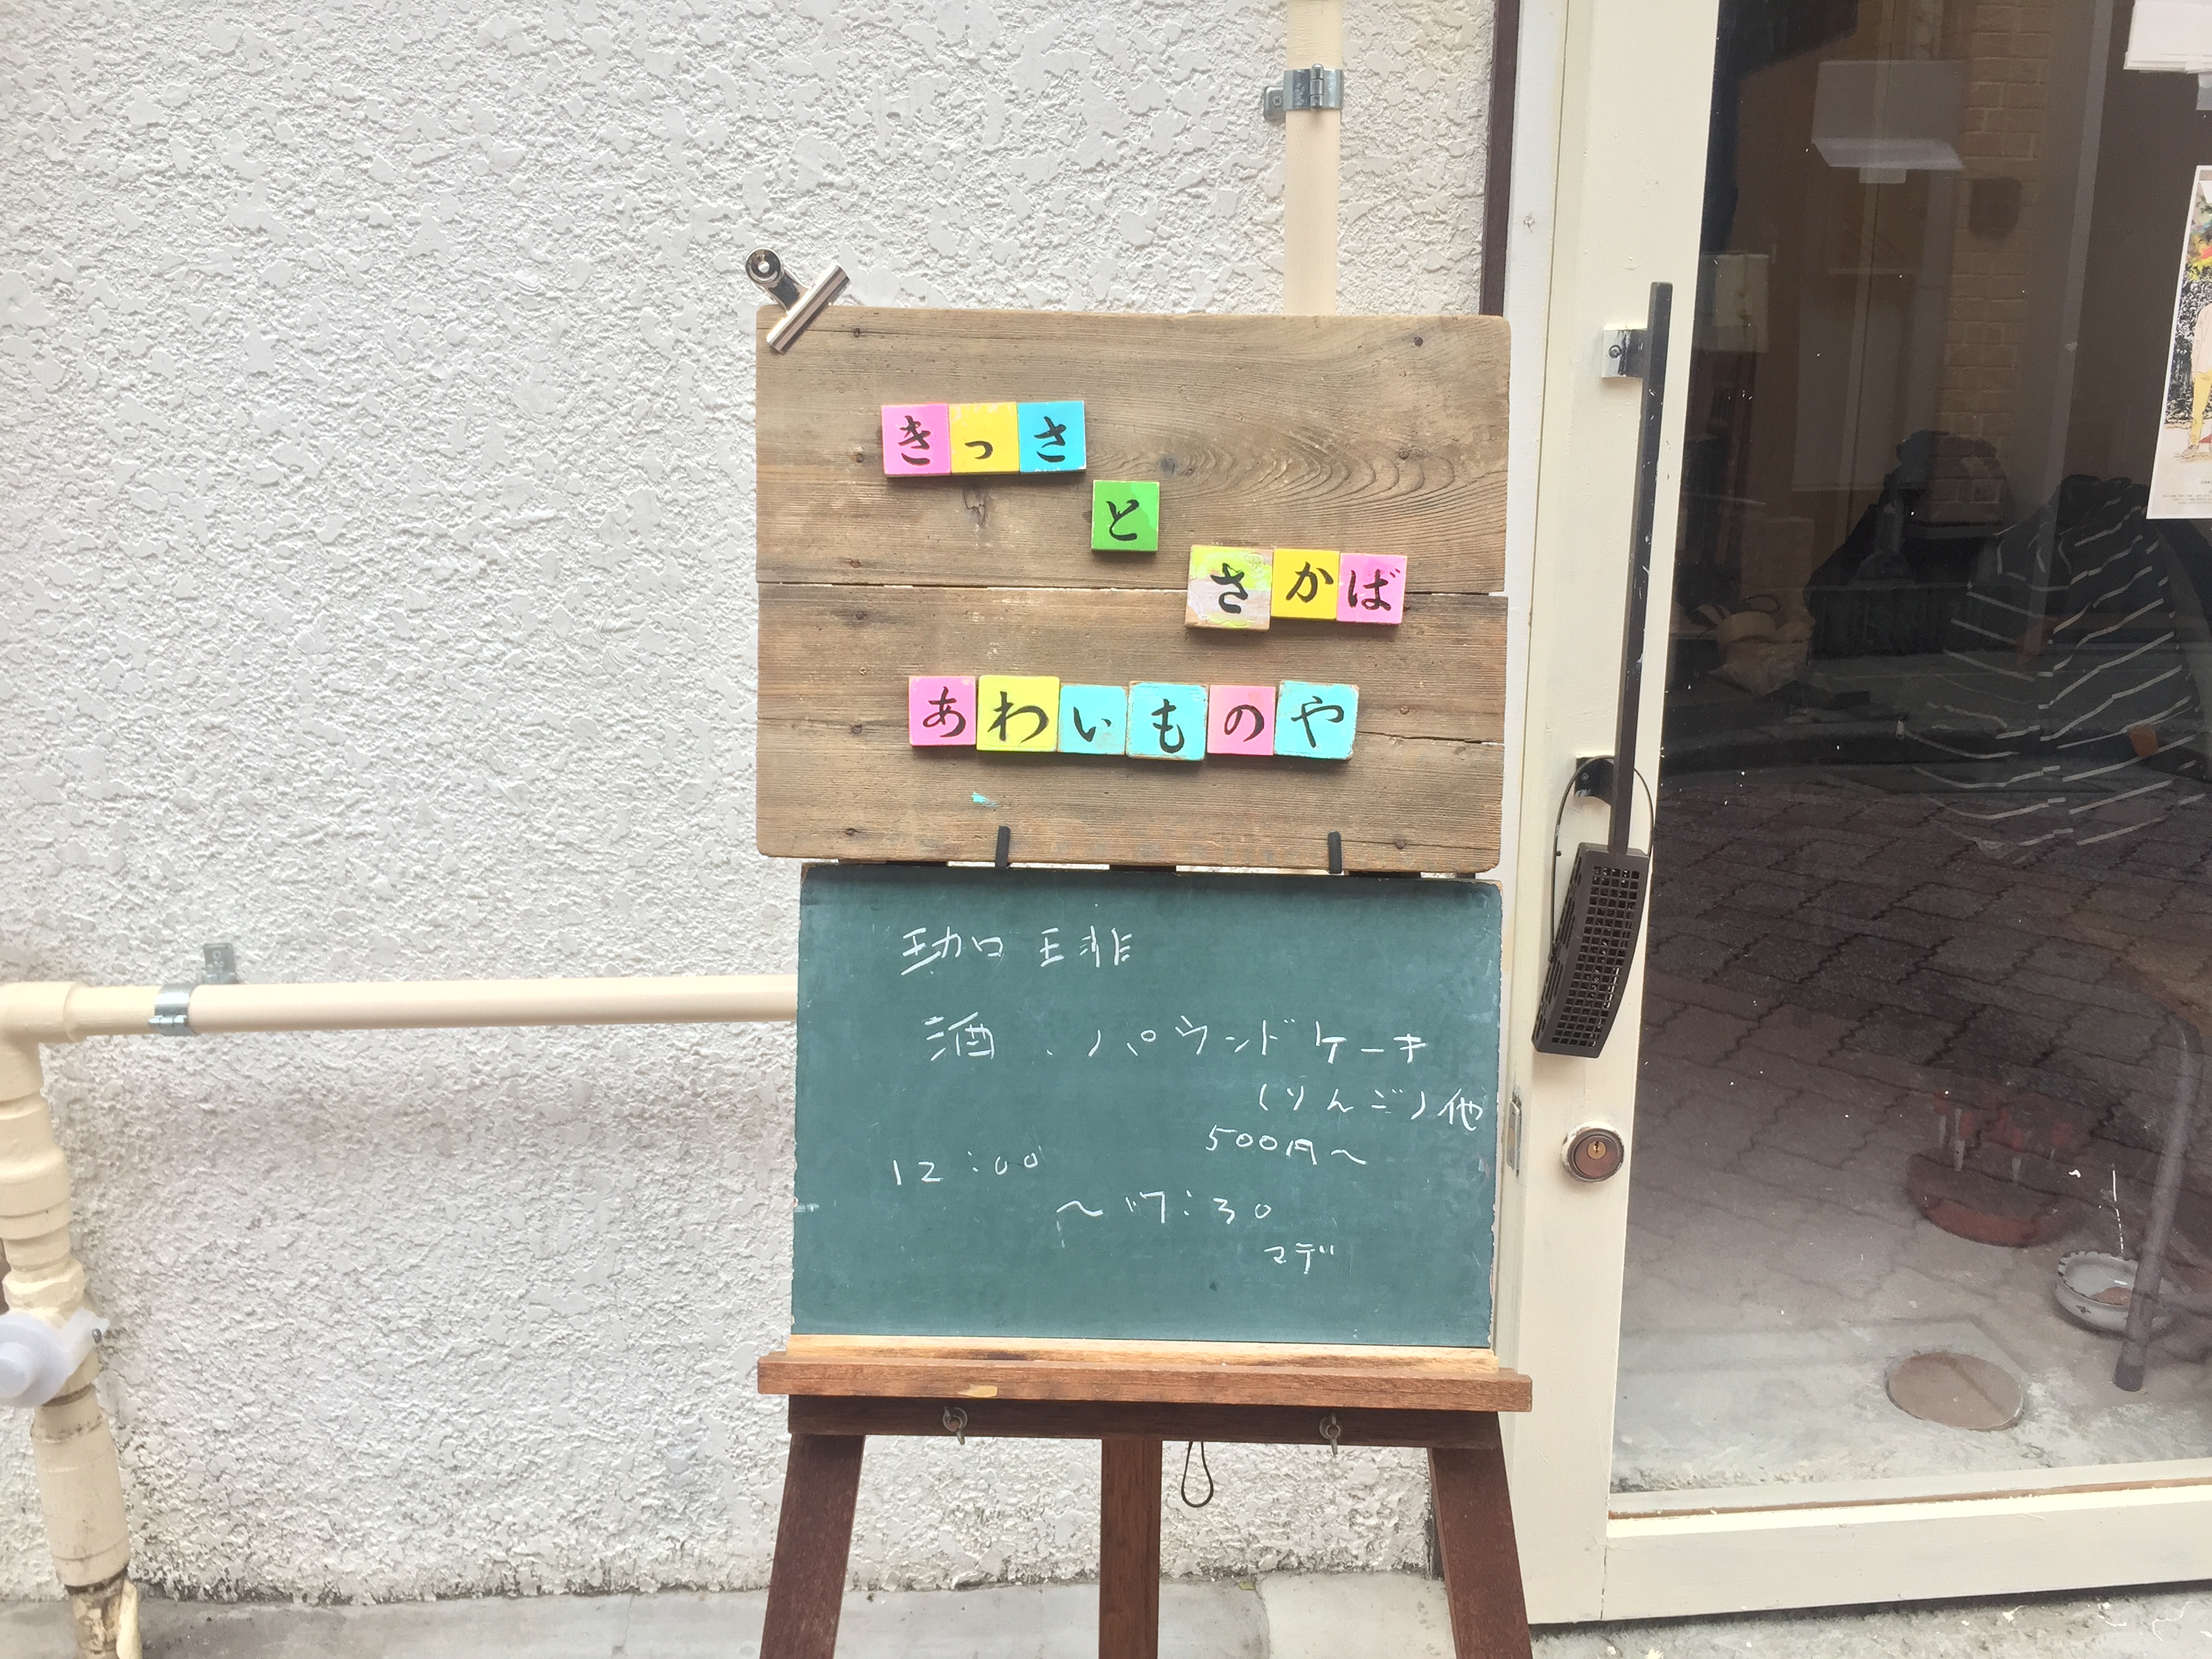 きっさ
と
さかば
あわいものや
珈琲
酒、パウンドケーキ
(りんご)他
500円〜
12:00
〜17:30
マデ